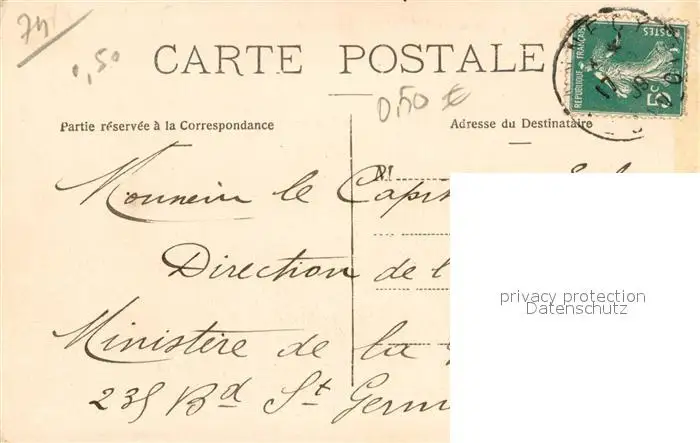 74
0,50
CARTE POSTALE
REPUBLIQUE FRANÇAISE
POSTES
5c
17
09
0,50 €
Partie réservée à la Correspondance
Adresse du Destinataire
M
Monsieur le Capit
Direction de l
privacy protection
Datenschutz
Ministère de la
235 Bd St Germ